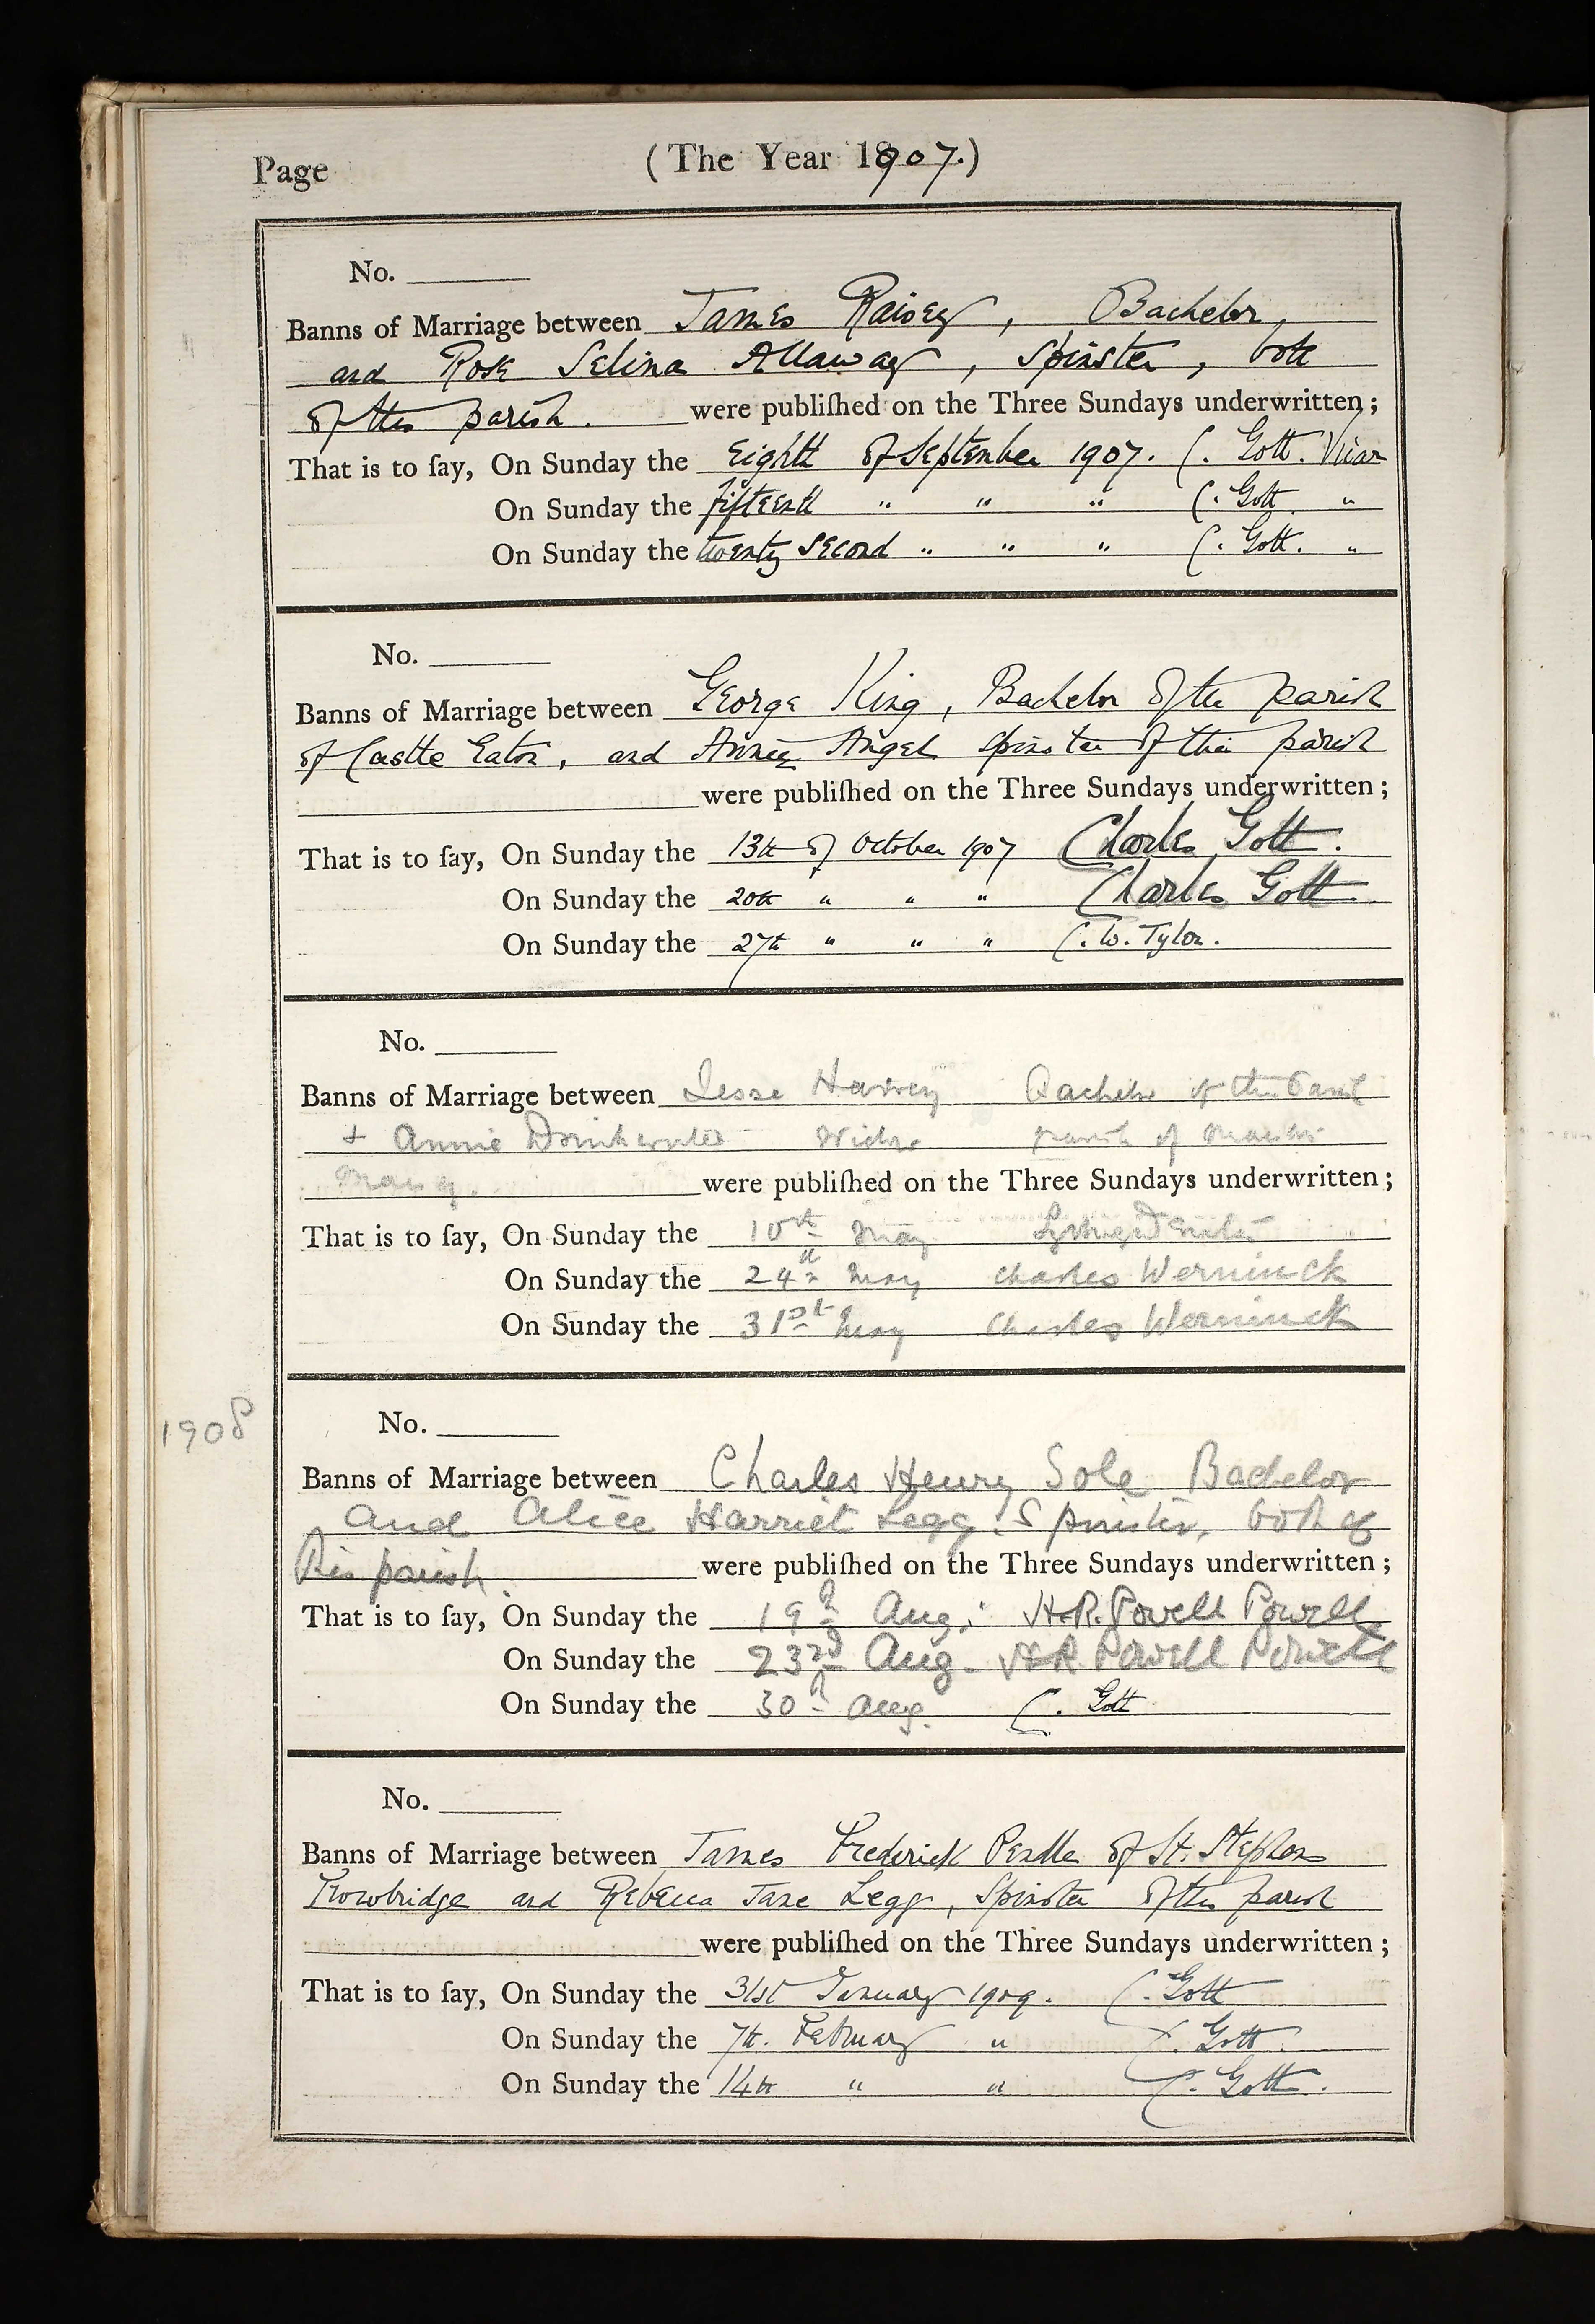 Page
(The Year 1907.)
No.
Banns of Marriage between James Raisey, Bachelor,
and Rose Selina Allaway, Spinster, both
of this parish. were publiſhed on the Three Sundays underwritten;
That is to ſay, On Sunday the Eighth of September 1907. C. Gott. Vicar
On Sunday the fifteenth " " " C. Gott. "
On Sunday the twenty second " " " C. Gott. "
No.
Banns of Marriage between George King, Bachelor of the parish
of Castle Eaton, and Annie Angel spinster of this parish
were publiſhed on the Three Sundays underwritten;
That is to ſay, On Sunday the 13th of October 1907 Charles Gott.
On Sunday the 20th " " " Charles Gott.
On Sunday the 27th " " " C. W. Tylor.
No.
Banns of Marriage between Jesse Harvey Bachelor of this
+ Annie Drinkwater Widow parish of
were publiſhed on the Three Sundays underwritten;
That is to ſay, On Sunday the May
On Sunday the 24th May Charles Werninck
On Sunday the 31st May Charles Werninck
1908
No.
Banns of Marriage between Charles Henry Sole Bachelor
and Alice Harriet Legg Spinster, both of
this parish. were publiſhed on the Three Sundays underwritten;
That is to ſay, On Sunday the 19th Aug. H.R. Powell Powell
On Sunday the 23rd Aug. H.R. Powell Powell
On Sunday the 30th Aug. C. Gott
No.
Banns of Marriage between James Frederick Pendle of St. Stephens
Trowbridge and Rebecca Jane Legg, Spinster of this parish
were publiſhed on the Three Sundays underwritten;
That is to ſay, On Sunday the 31st January 1909. C. Gott
On Sunday the 7th. February " C. Gott.
On Sunday the 14th " " C. Gott.